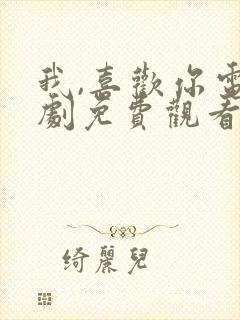 我,喜歡你電
劇免費觀看
綺麗兒